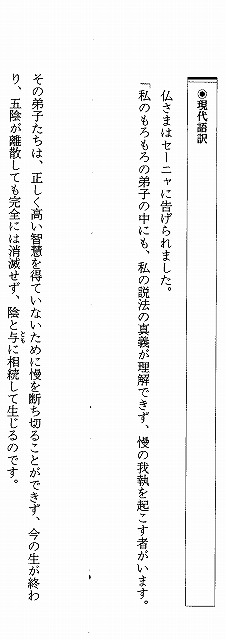 ◉現代語訳
仏さまはセーニャに告げられました。
「私のもろもろの弟子の中にも、私の説法の真義が理解できず、慢の我執を起こす者がいます。
その弟子たちは、正しく高い智慧を得ていないために慢を断ち切ることができず、今の生が終わ
り、五陰が離散しても完全には消滅せず、陰と与に相続して生じるのです。
とも